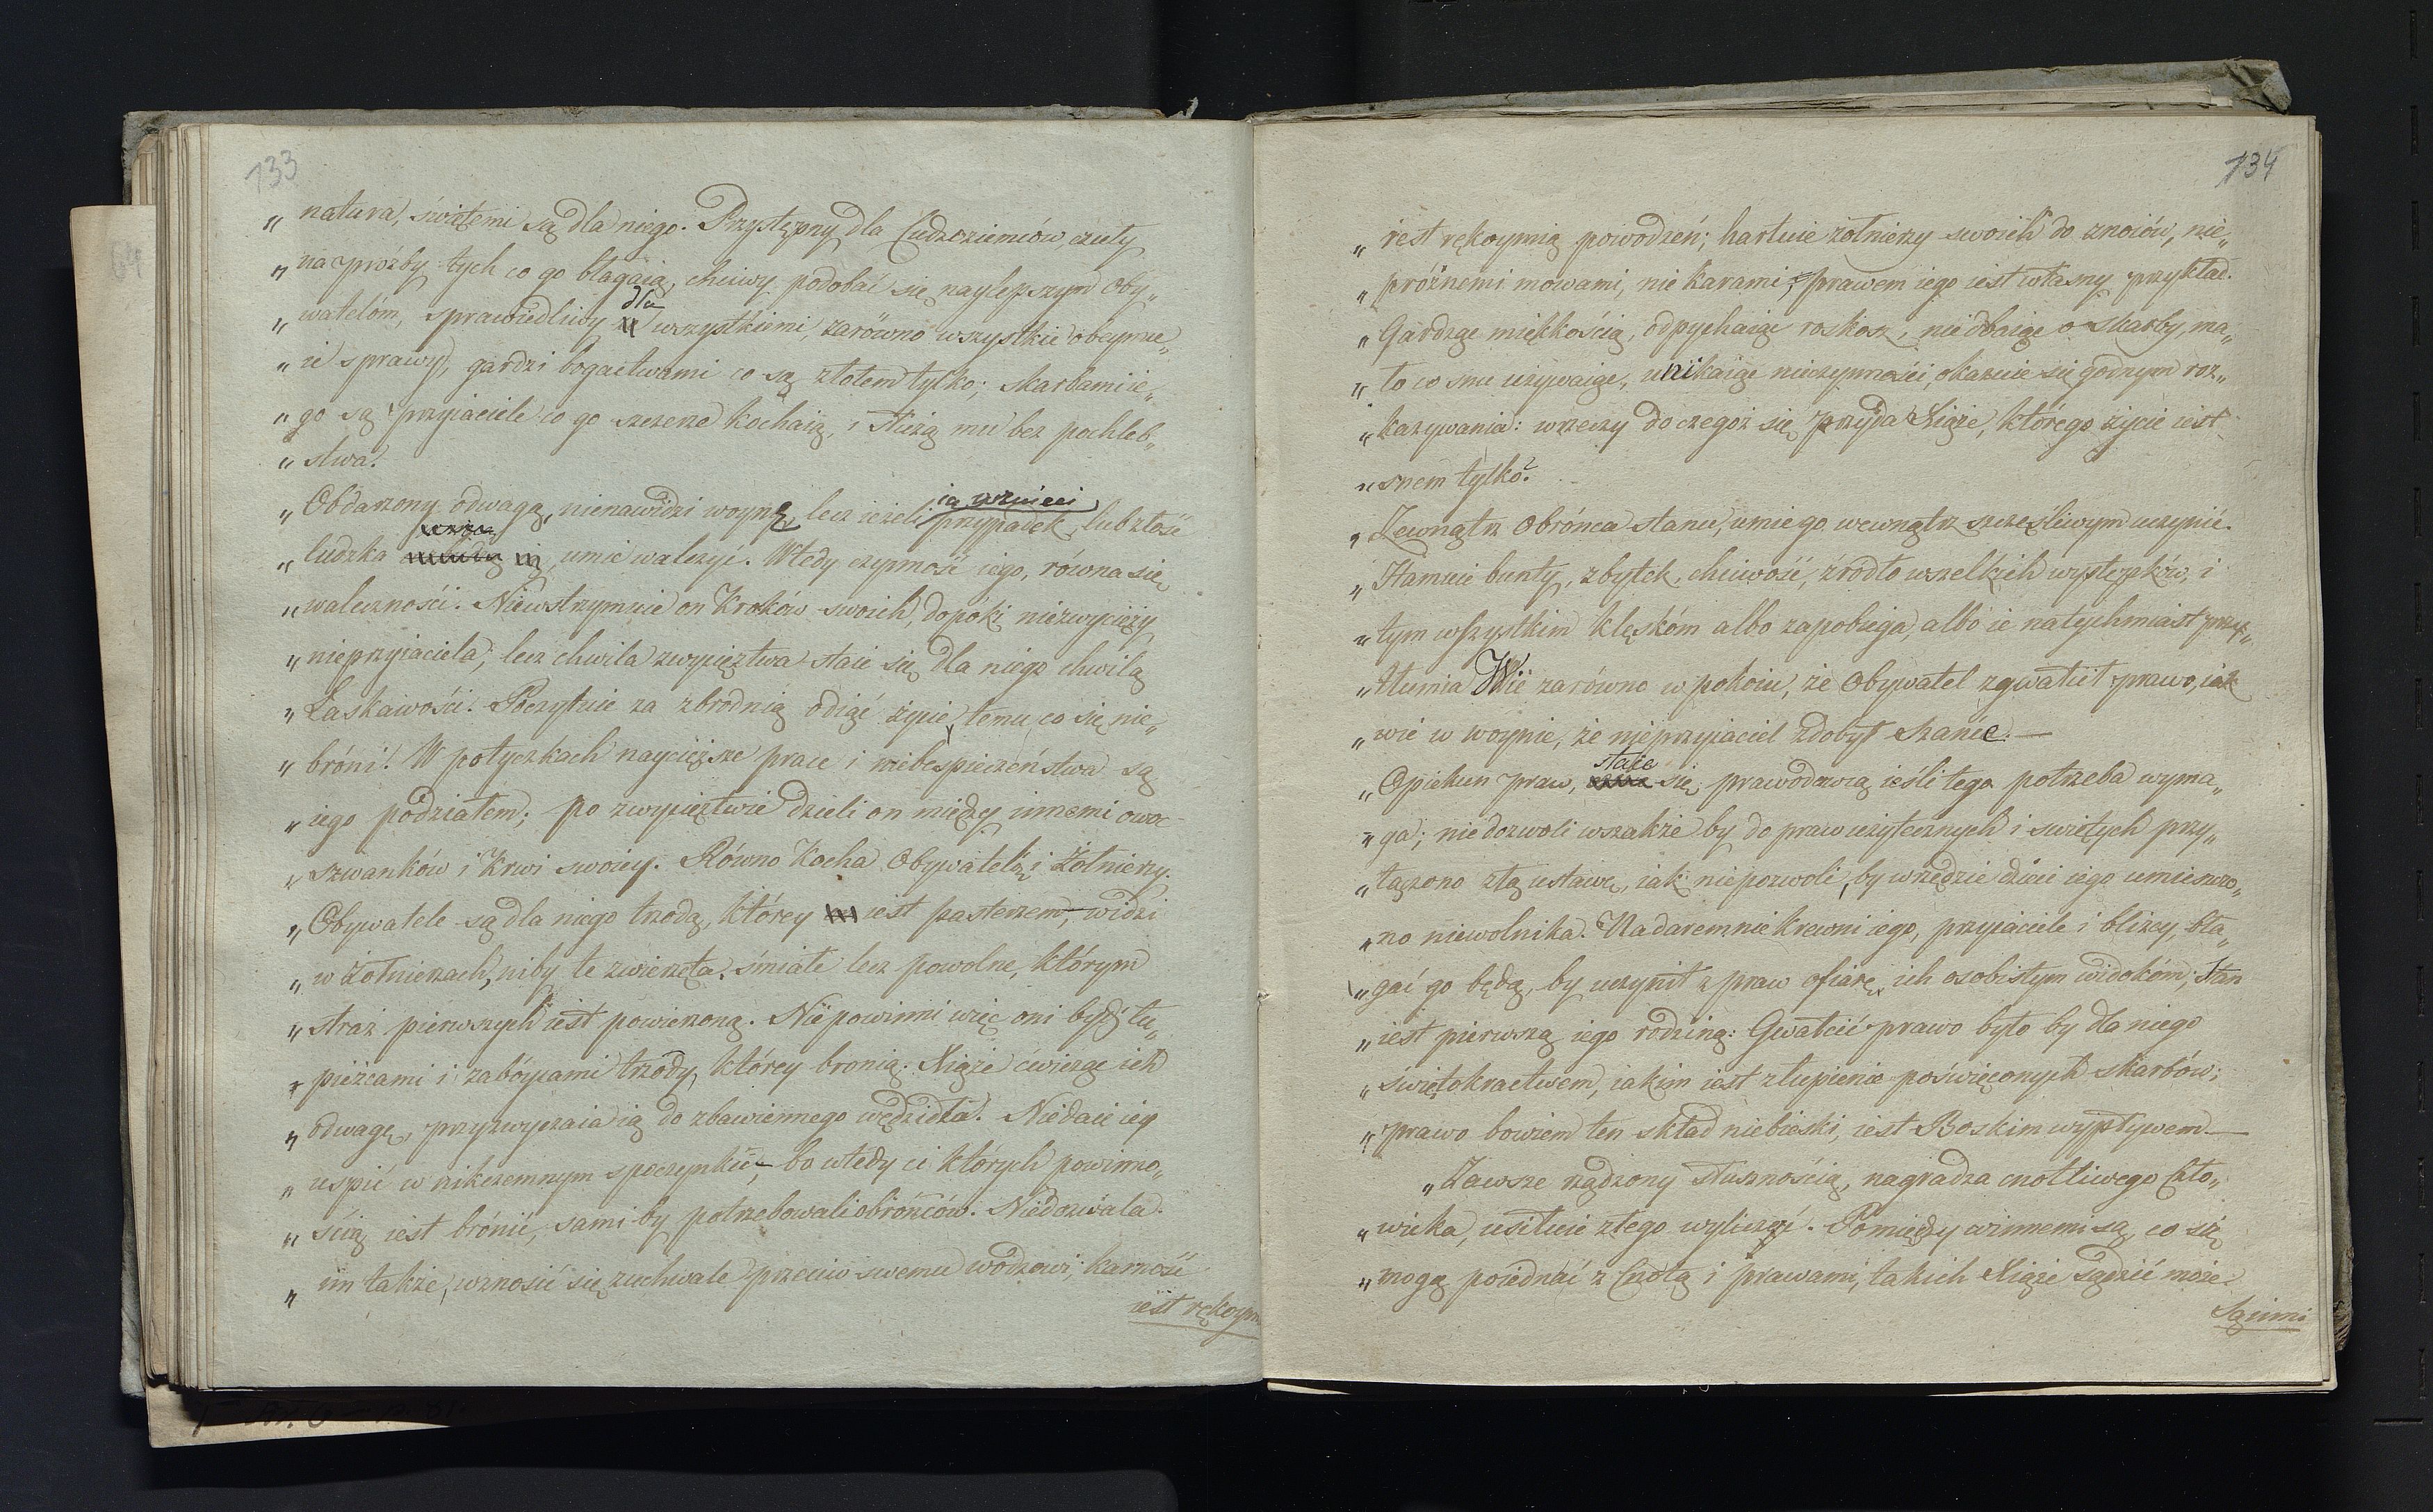 133
„ natura, świętemi są dla niego. Przystępny dla Cudzoziemców, czuły
„ na proźby tych co go błagaią, chciwy podobać się naylepszym Oby„
„ watelóm, sprawiedliwy dla wszystkiemi, zarówno wszystkie obeymu„
„ ie sprawy, gardzi bogactwami co są złotem tylko; skarbami ie„
„ go są przyiaciele co go szczerze kochaią, i służą mu bez pochleb„
„ stwa.
„ Obdarzony odwagą, nienawidzi woynę, lecz ieżeli ią wznieci przypadek, lub złość
„ ludzka umie walczyć. Wtedy czynność iego, równa się
„ waleczności. Niewstrzymuie on Kroków swoich, dopóki niezwycięży
„ nieprzyiaciela, lecz chwila zwycięztwa staie się dla niego chwilą
„ Łaskawości. Poczytuie za zbrodnią odiąć życie temu co się nie„
„ bróni. W potyczkach naycięższe prace i niebespieczeństwa są
„ iego podziałem; po zwycięztwie dzieli on między innemi owoc
„ szwanków i Krwi swoiey. Równo Kocha Obywateli i Żołnierzy.
„ Obywatele są dla niego trzodą, którey iest pasterzem, widzi
„ w żołnierzach, niby te zwierzęta śmiałe lecz powolne, którym
„ straż pierwszych iest powierzoną. Nie powinni więc oni bydź łu„
„ pieżcami i zabóycami trzody, którey bronią. Xiąże ćwicząc ich
„ odwagę, przyzwyczaia ią do zbawiennego wędzidła. Niedaie iey
„ uspić w nikczemnym spoczynku, bo wtedy ci których powinno„
„ ścią iest brónić, sami by potrzebowali obrońców. Niedozwala
„ im także, wznosić się zuchwale przeciw swemu wodzowi; karność
iest rękoym
134
„ iest rękoymią powodzeń; hartuie żołnierzy swoich do znoiów, nie„
„ próżnemi mowami, nie karami, prawem iego iest własny przykład.
„ Gardząc miękkością, odpychaiąc roskosz, nie dbaiąc o skarby, ma„
„ ło co snu używaiąc, unikaiąc nieczynności, okazuie się godnym roz„
„ kazywania: wrzeczy do czegoż się przyda Xiąże, którego życie iest
„ snem tylko?
„ Zewnątrz Obrónca stanu, umie go wewnątrz szczęśliwym uczynić.
„ Hamuie bunty, zbytek, chciwość, źrodło wszelkich występków, i
„ tym wszystkim klęskóm albo zapobiega, albo ie natychmiast przy„
„ tłumia Wie zarówno w pokoiu, że Obywatel zgwałcił prawo, iak
„ wie w woynie, że nieprzyiaciel zdobył szańce. —
„ Opiekun praw, staie się prawodawcą ieśli tego potrzeba wyma„
„ ga; niedozwoli wszakże by do praw użytecznych i swiętych przy„
„ łączono złą ustawę, iak niepozwoli, by w rzędzie dzieci iego umieszczo„
„ no niewolnika. Nadaremnie krewni iego, przyiaciele i bliscy, bła„
„ gać go będą, by uczynił z praw ofiarę, ich osobistym widokóm; Stan
„ iest pierwszą iego rodziną: Gwałcić prawo było by dla niego
„ świętokractwem, iakim iest złupienie poświęconych skarbów;
„ prawo bowiem ten skład niebieski, iest Boskim wypływem. —
„ Zawsze rządzony słusznością, nagradza cnotliwego Czło„
„ wieka, usiłuie złego wyleczyć. Pomiędzy winnemi są, co się
„ mogą poiednać z Cnotą i prawami, takich Xiąże sądzić może.
Są inni